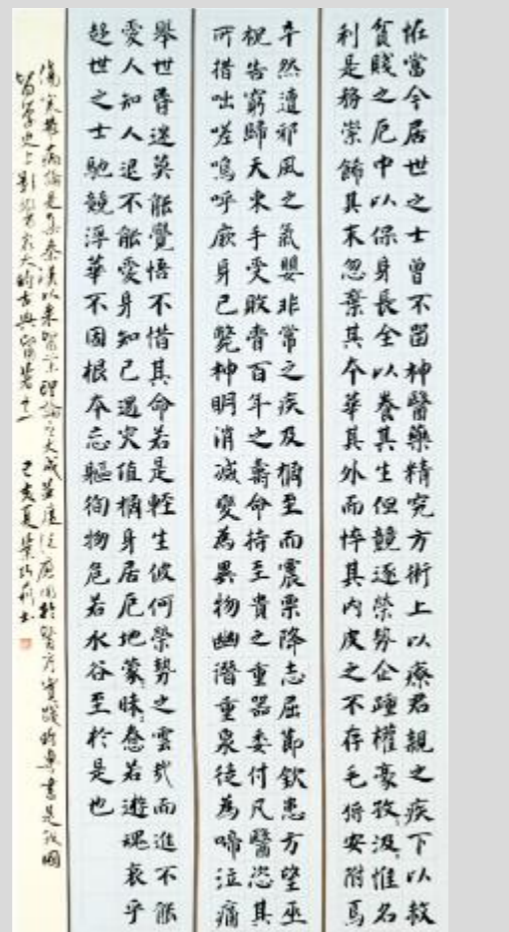 恠當今居世之士曾不留神醫藥精究方術上以療君親之疾下以救
貧賤之厄中以保身長全以養其生但競逐榮勢企踵權豪孜〻汲〻惟名
利是務崇飾其末忽棄其本華其外而悴其內皮之不存毛將安附焉
卒然遭邪風之氣嬰非常之疾及禍至而震栗降志屈節欽患方望巫
祝告窮歸天束手受敗賫百年之壽命持至貴之重器委付凡醫恣其
所措咄嗟嗚呼厥身已斃神明消滅變為異物幽潛重泉徒為啼泣痛
舉世昏迷莫能覺悟不惜其命若是輕生彼何榮勢之雲哉而進不能
愛人知人退不能愛身知己遇災值禍身居厄地蒙〻昧〻惷若遊魂哀乎
趨世之士馳競浮華不固根本忘軀徇物危若冰谷至於是也
傷寒雜病論是集秦漢以來醫藥理論之大成並廣泛應用於醫方實踐的專書是我國
醫學史上影響最大的古典醫著之一 己亥夏